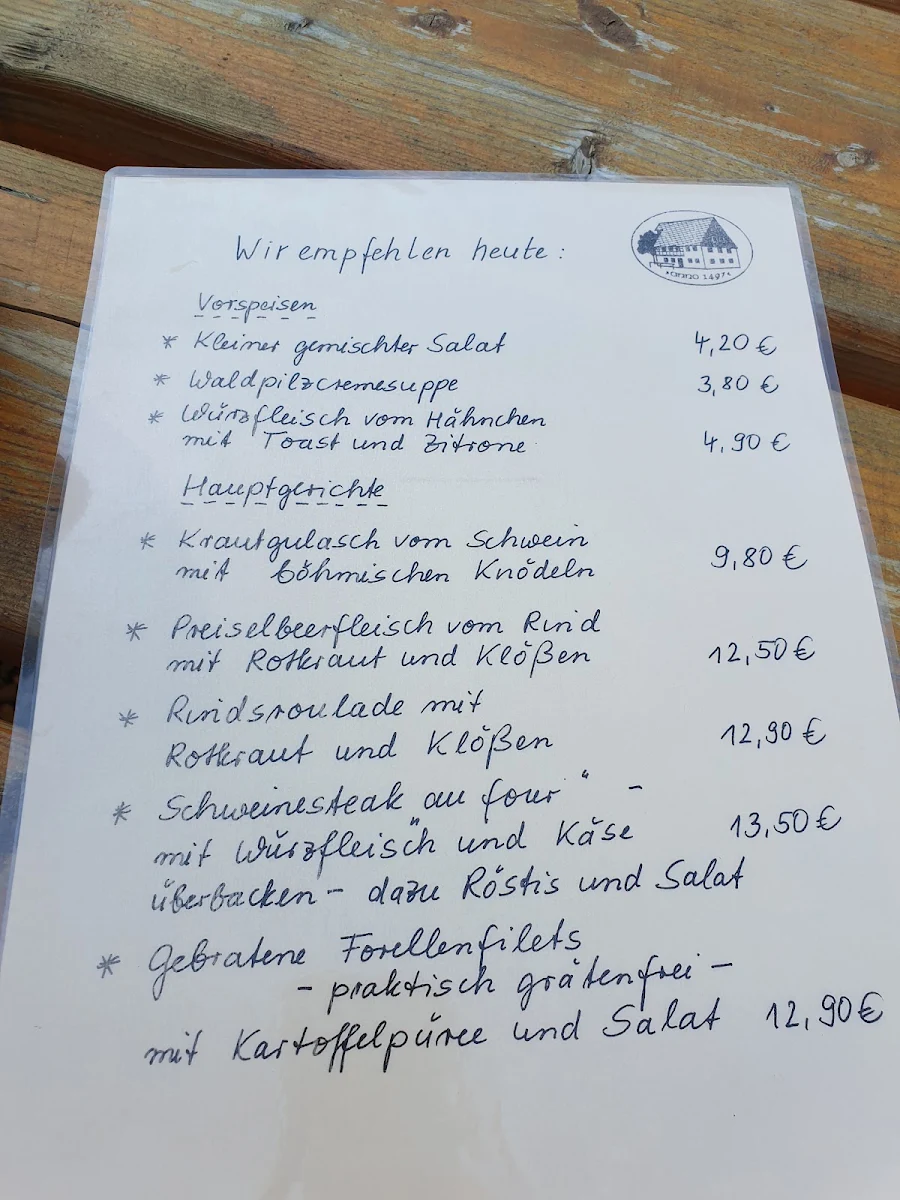 Wir empfehlen heute:
anno 1497
Vorspeisen
* Kleiner gemischter Salat 4,20 €
* Waldpilzcremesuppe 3,80 €
* Würzfleisch vom Hähnchen
mit Toast und Zitrone 4,90 €
Hauptgerichte
* Krautgulasch vom Schwein
mit böhmischen Knödeln 9,80 €
* Preiselbeerfleisch vom Rind
mit Rotkraut und Klößen 12,50 €
* Rindsroulade mit
Rotkraut und Klößen 12,90 €
* Schweinesteak „au four“ -
mit Würzfleisch und Käse 13,50 €
überbacken - dazu Röstis und Salat
* Gebratene Forellenfilets
- praktisch grätenfrei -
mit Kartoffelpüree und Salat 12,90 €